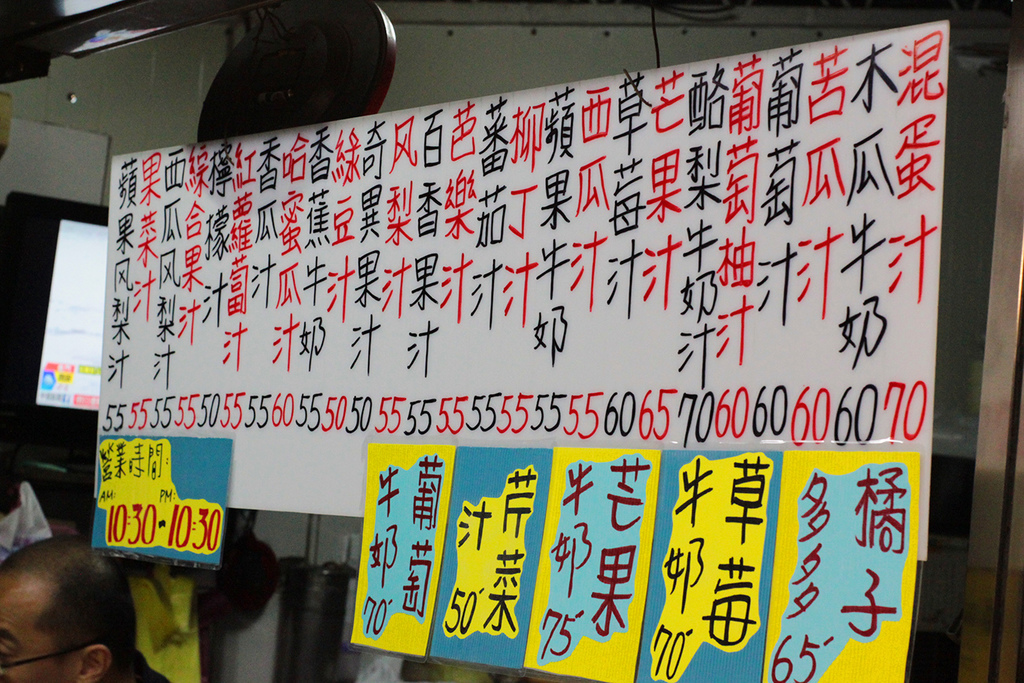 混蛋汁 70
木瓜牛奶 60
苦瓜汁 60
葡萄汁 60
葡萄柚汁 60
酪梨牛奶汁 70
芒果汁 65
草莓汁 60
西瓜汁 55
蘋果牛奶 55
柳丁汁 55
蕃茄汁 55
芭樂汁 55
百香果汁 55
风梨汁 55
奇異果汁 50
綠豆汁 50
香蕉牛奶 55
哈蜜瓜汁 60
香瓜汁 55
紅蘿蔔汁 55
檸檬汁 50
綜合果汁 55
西瓜风梨汁 55
果菜汁 55
蘋果风梨汁 55
橘子
多多多
65
草莓
牛奶
70
芒果
牛奶
75
芹菜
汁
50
葡萄
牛奶
70
營業時間:
AM: PM:
10:30~10:30